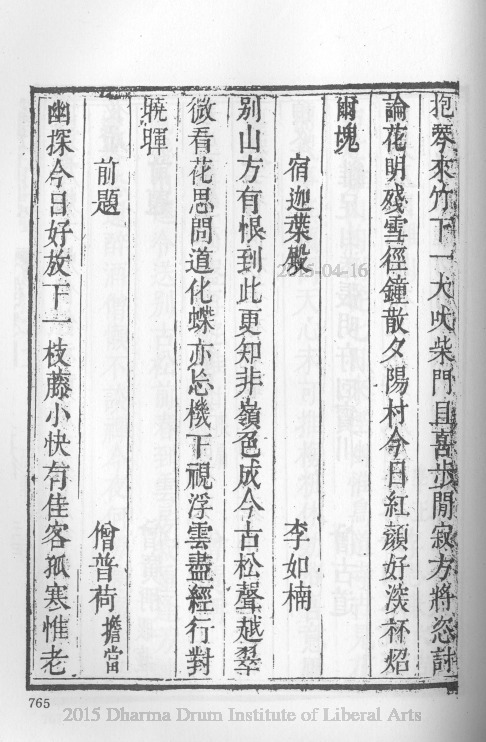 抱琴來竹下一犬吠柴門且喜步閒寂方將恣討
論花明殘雪徑鐘散夕陽村今日紅顏好淡杯炤
爾塊
宿迦葉殿 李如楠
別山方有恨到此更知非嶺色成今古松聲越翠
微看花思問道化蝶亦忘機下視浮雲盡經行對
曉暉
前題 僧普荷擔當
幽探今日好放下一枝藤小快有佳客孤寒惟老
765
2015-04-16
2015 Dharma Drum Institute of Liberal Arts